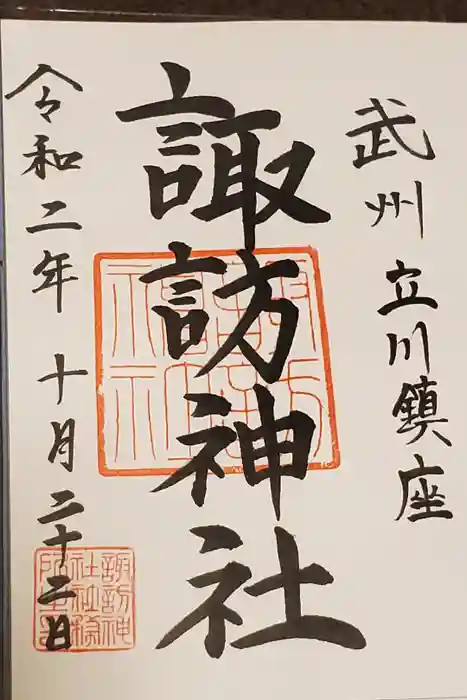 武州立川鎮座
諏訪神社
令和二年十月二十二日